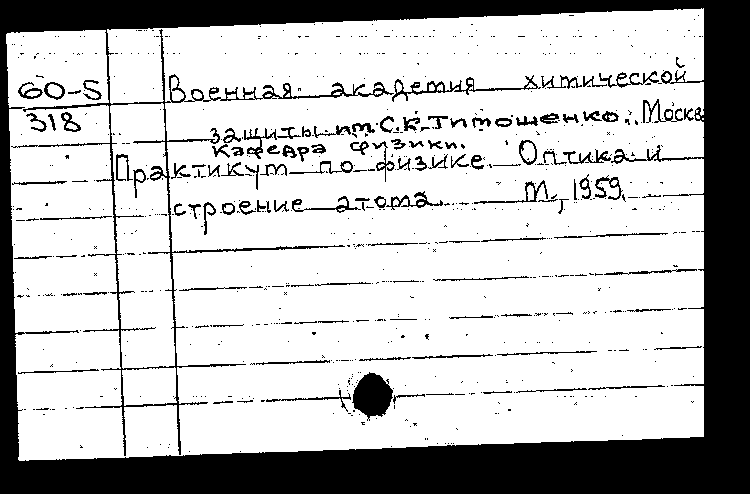 60-5
318
Военная академия химической
защиты им. С.К. Тимошенко. Москва
Кафедра физики.
Практикум по физике. Оптика и
строение атома. М., 1959.